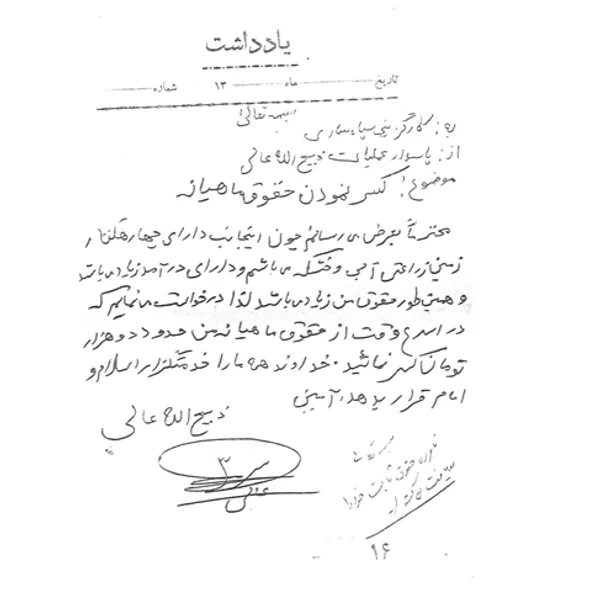 یادداشت
تاریخ ماه ۱۳ شماره
بسمه تعالی
به: کارگزینی سپاه ساری
از: پاسدار عملیات ذبیح الله عالی
موضوع: کسر نمودن حقوق ماهیانه
محترماً بعرض می رسانم چون اینجانب دارای چهار هکتار
زمین زراعتی آبی و خشکه می باشم و دارای درآمد زیاد می باشد
و همینطور حقوق من زیاد می باشد لذا درخواست می نمایم که
در اسرع وقت از حقوق ماهیانه من حدود دو هزار
توماناً کسر نمائید. خداوند همه ما را خدمتگزار اسلام و
امام قرار بدهد، آمین
ذبیح الله عالی
بسمه تعالی
حقوق ثابت خود را
۱۶